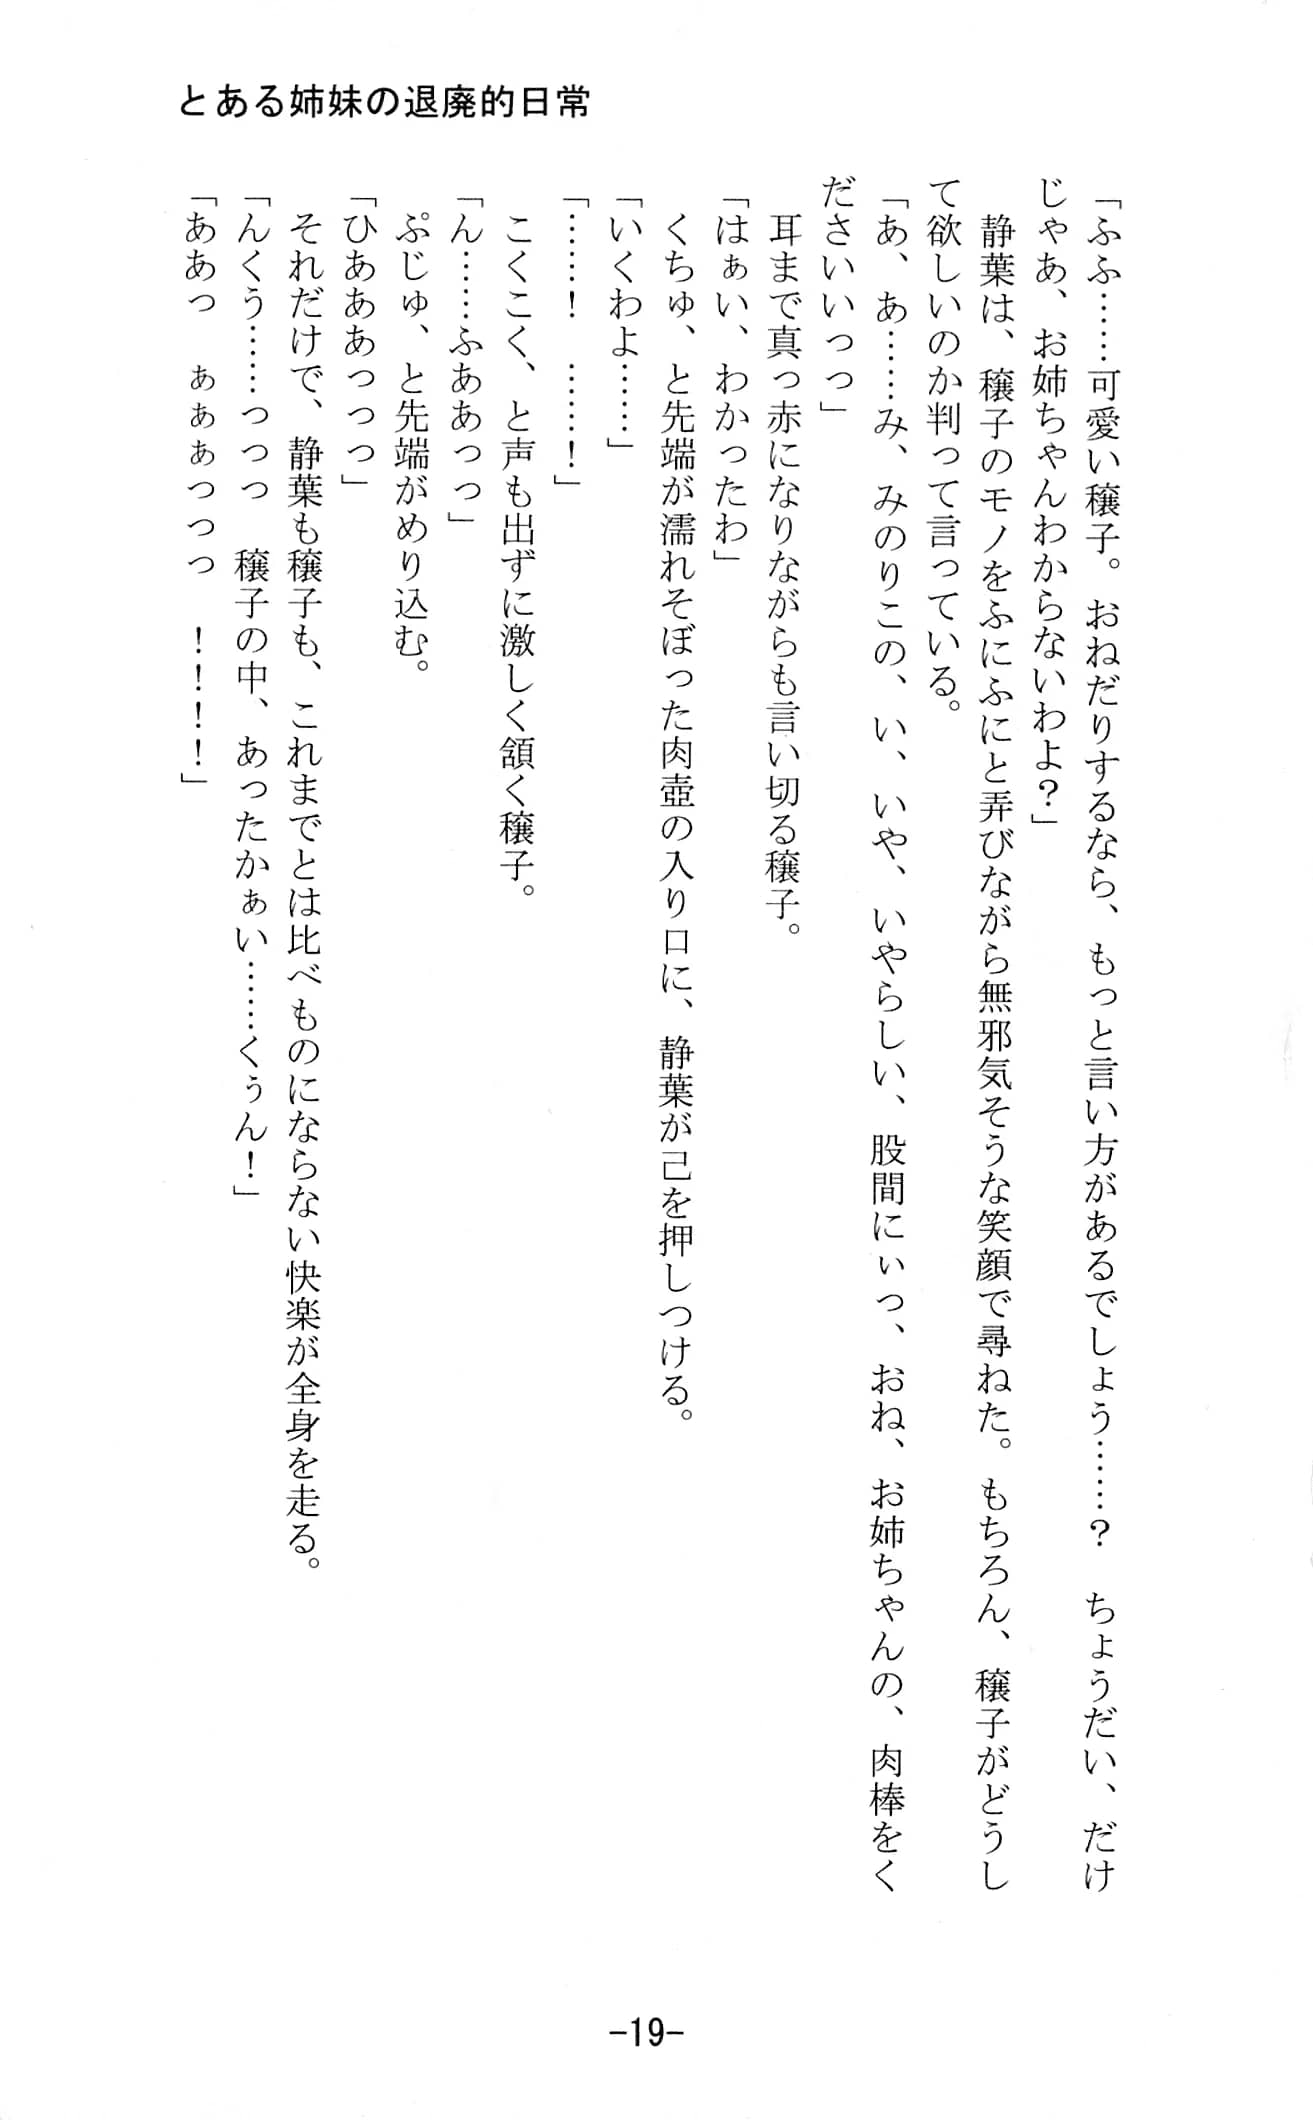 とある姉妹の退廃的日常
「ふふ……可愛い穣子。おねだりするなら、もっと言い方があるでしょう……？　ちょうだい、だけ
じゃあ、お姉ちゃんわからないわよ？」
　静葉は、穣子のモノをふにふにと弄びながら無邪気そうな笑顔で尋ねた。もちろん、穣子がどうし
て欲しいのか判って言っている。
「あ、あ……み、みのりこの、い、いや、いやらしい、股間にぃっ、おね、お姉ちゃんの、肉棒をく
ださいいっっ」
　耳まで真っ赤になりながらも言い切る穣子。
「はぁい、わかったわ」
　くちゅ、と先端が濡れそぼった肉壺の入り口に、静葉が己を押しつける。
「いくわよ……」
「……！　……！」
　こくこく、と声も出ずに激しく頷く穣子。
「ん……ふああっっ」
　ぷじゅ、と先端がめり込む。
「ひあああっっっ」
　それだけで、静葉も穣子も、これまでとは比べものにならない快楽が全身を走る。
「んくう……っっっ　穣子の中、あったかぁい……くぅん！」
「ああっ　ぁぁぁっっっ　！！！！」
-19-